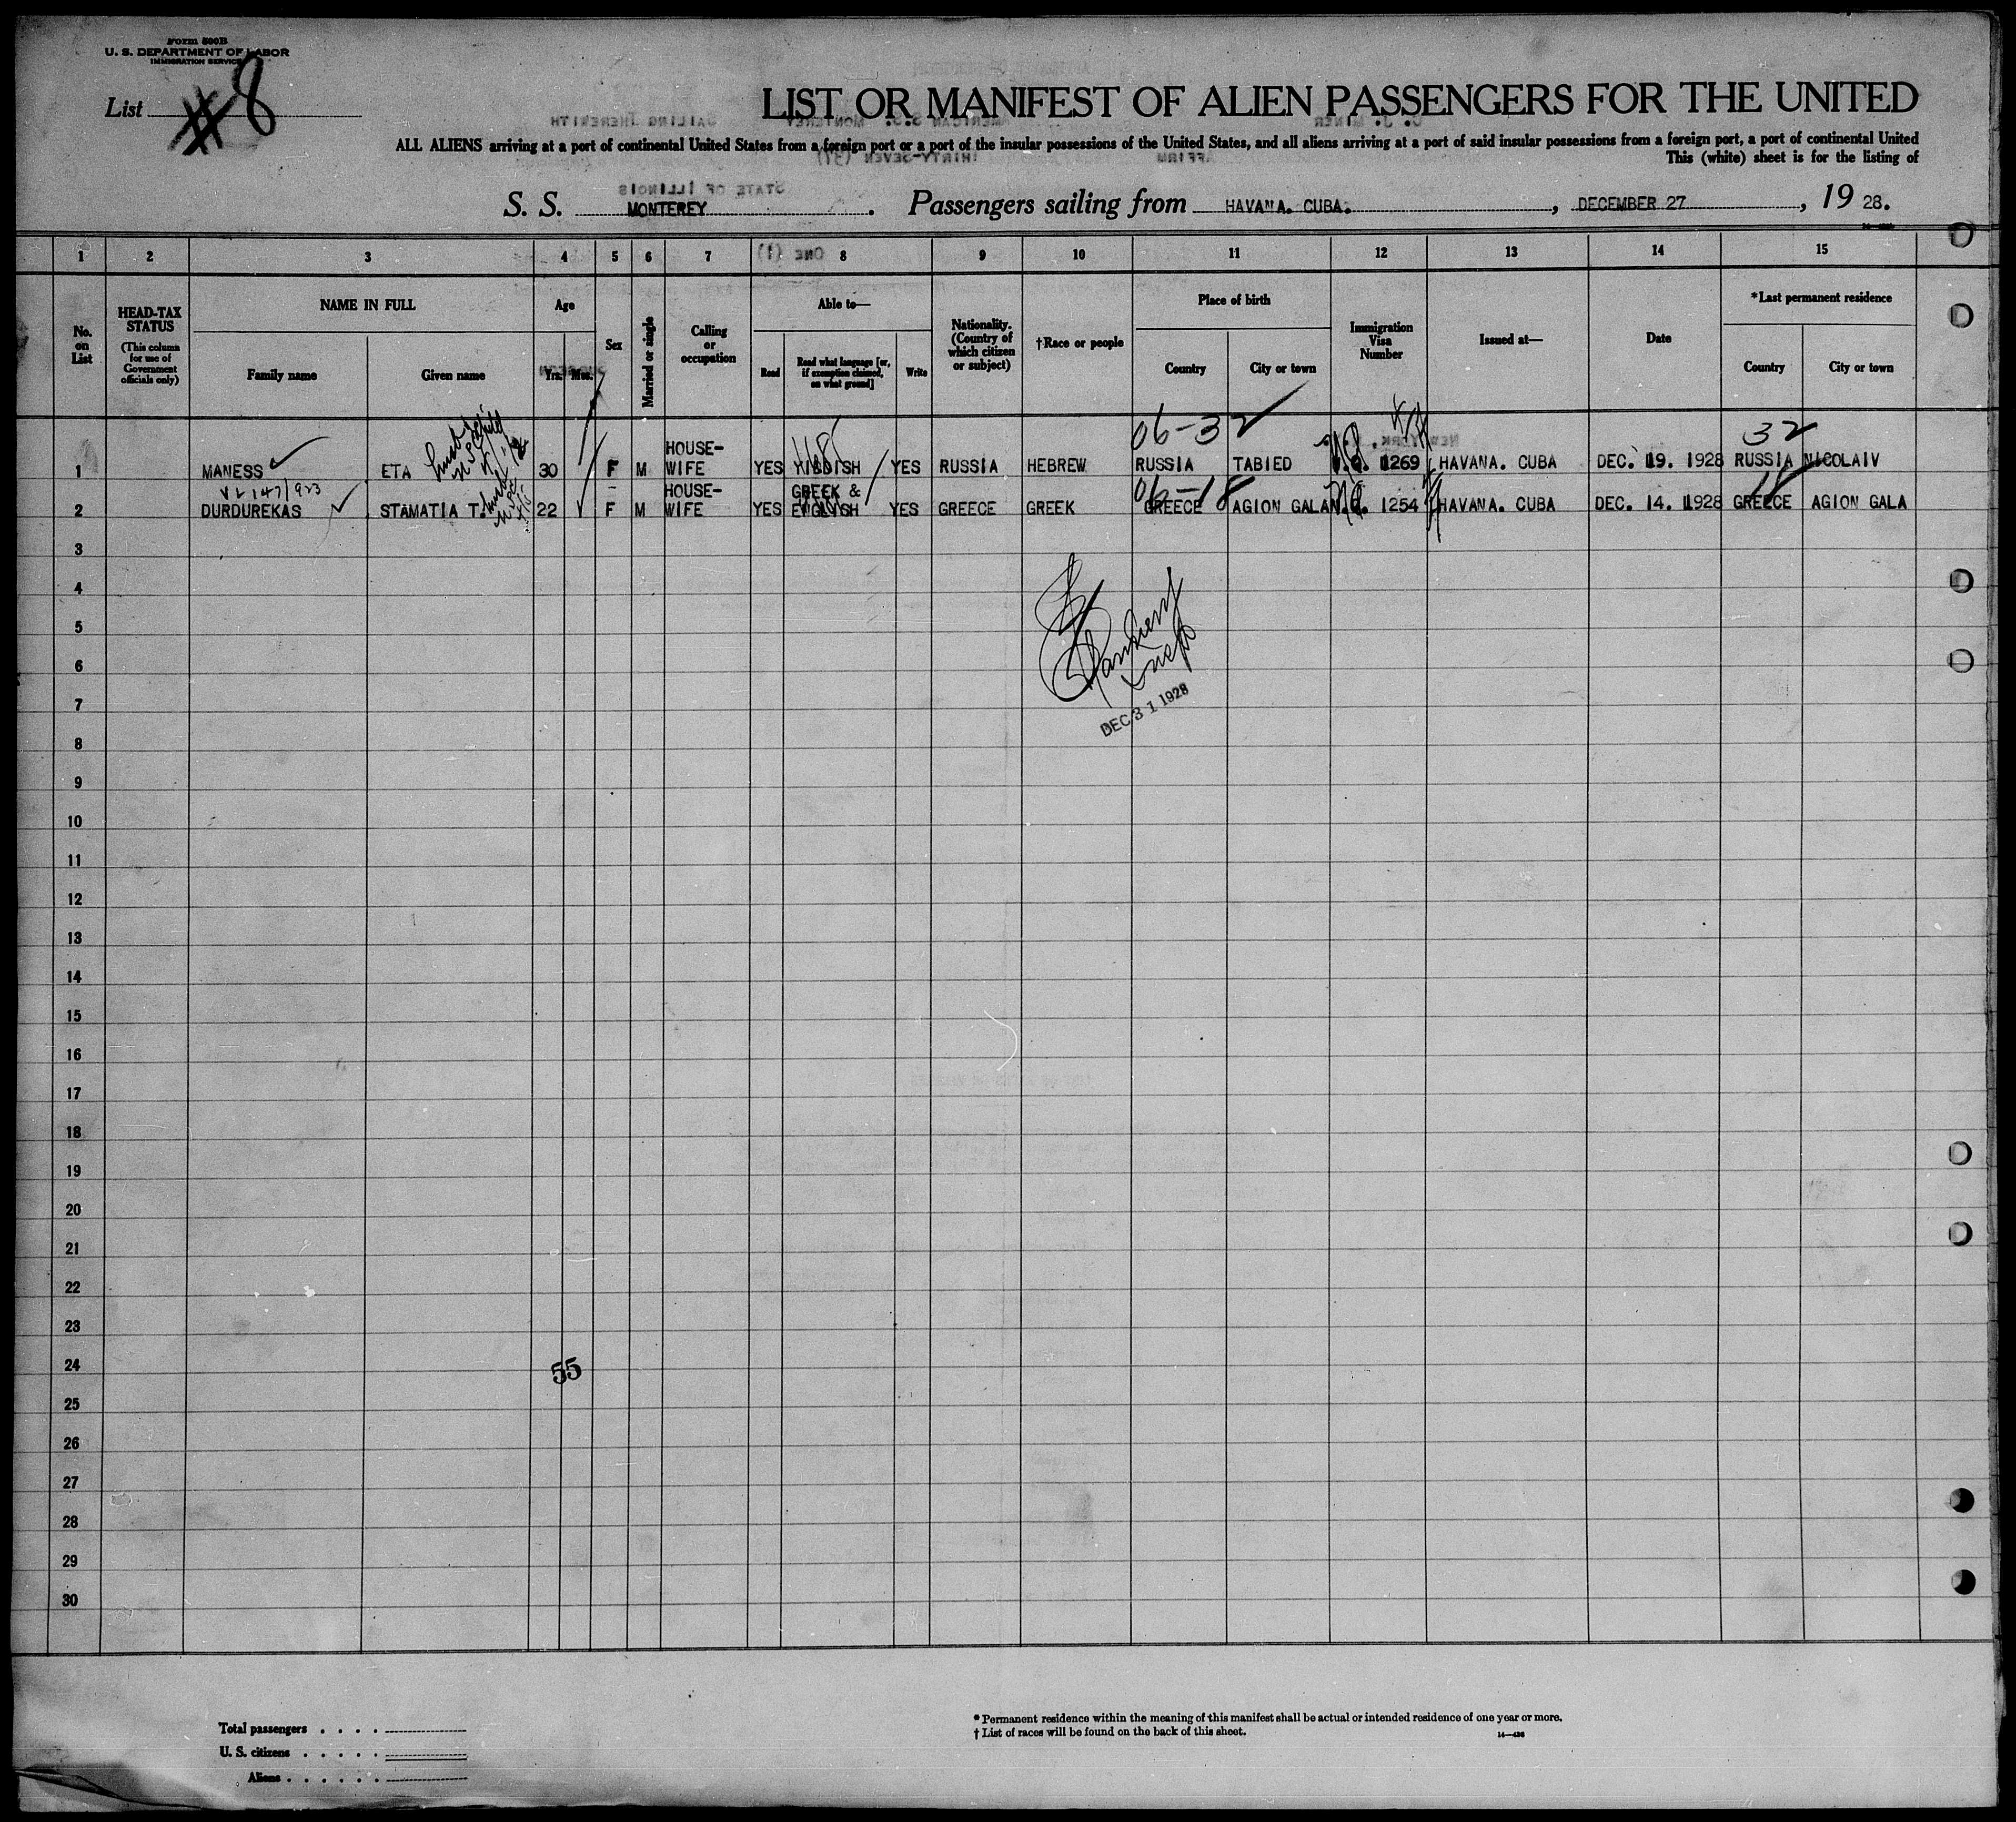 Form 500B
U. S. DEPARTMENT OF LABOR
IMMIGRATION SERVICE
List #8
LIST OR MANIFEST OF ALIEN PASSENGERS FOR THE UNITED
ALL ALIENS arriving at a port of continental United States from a foreign port or a port of the insular possessions of the United States, and all aliens arriving at a port of said insular possessions from a foreign port, a port of continental United
This (white) sheet is for the listing of
STATE OF ILLINOIS
S. S. MONTEREY. Passengers sailing from HAVANA. CUBA., DECEMBER 27, 19 28.
1 2 3 4 5 6 7 8 9 10 11 12 13 14 15
No. on List
HEAD-TAX STATUS (This column for use of Government officials only)
NAME IN FULL
Family name Given name
Age
Yrs. Mos.
Sex
Married or single
Calling or occupation
Able to—
Read Read what language [or, if exemption claimed, on what ground] Write
Nationality. (Country of which citizen or subject)
†Race or people
Place of birth
Country City or town
Immigration Visa Number
Issued at—
Date
*Last permanent residence
Country City or town
06-32 32
1 MANESS ETA 30 F M HOUSE-WIFE YES YIDDISH YES RUSSIA HEBREW RUSSIA TABIED 1269 HAVANA. CUBA DEC. 19. 1928 RUSSIA NICOLAIV
06-18 18
2 DURDUREKAS STAMATIA T. 22 F M HOUSE-WIFE YES GREEK & ENGLISH YES GREECE GREEK GREECE AGION GALA 1254 HAVANA. CUBA DEC. 14. 1928 GREECE AGION GALA
3
4
5
6
7
DEC 31 1928
8
9
10
11
12
13
14
15
16
17
18
19
20
21
22
23
24
55
25
26
27
28
29
30
Total passengers . . . .
U. S. citizens . . . . .
Aliens . . . . . .
* Permanent residence within the meaning of this manifest shall be actual or intended residence of one year or more.
† List of races will be found on the back of this sheet.